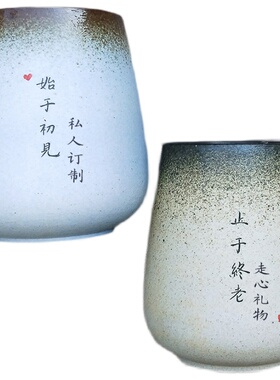 始于初見
私人订制
止于終老
走心礼物